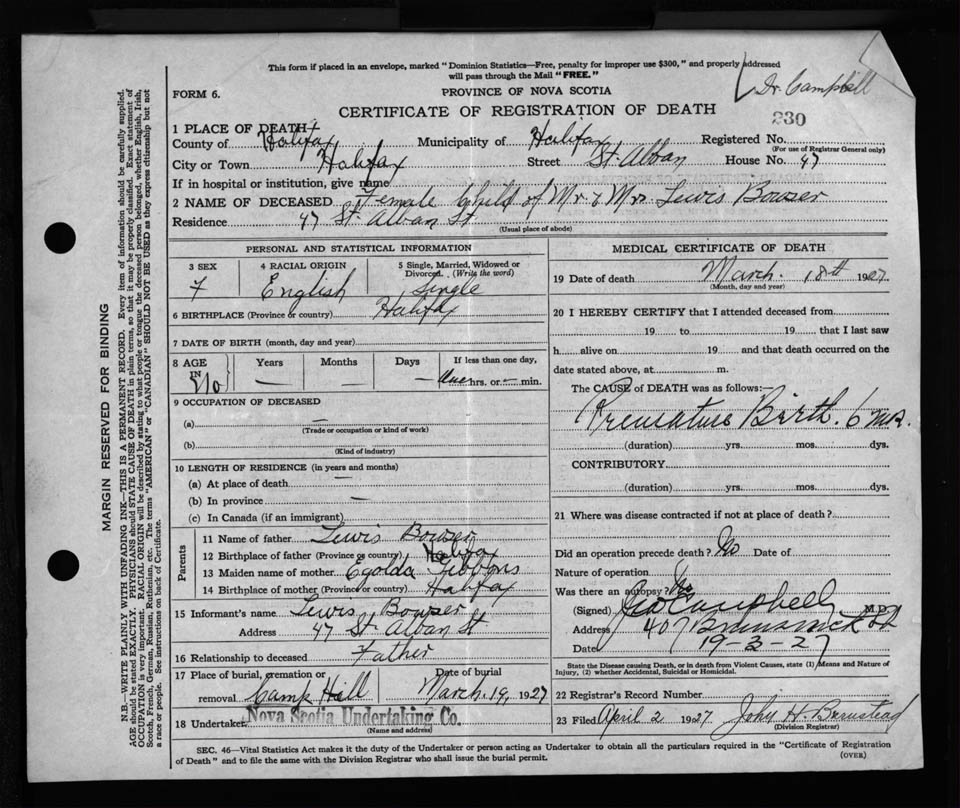 This form if placed in an envelope, marked "Dominion Statistics—Free, penalty for improper use $300," and properly addressed
will pass through the Mail "FREE."
Dr. Campbell
FORM 6.
PROVINCE OF NOVA SCOTIA
CERTIFICATE OF REGISTRATION OF DEATH
230
1 PLACE OF DEATH
County of Halifax Municipality of Halifax Registered No.
(For use of Registrar General only)
City or Town Halifax Street St. Alban House No. 47
If in hospital or institution, give name
2 NAME OF DECEASED Female Child of Mr & Mrs Lewis Bowser
Residence 47 St. Alban St
(Usual place of abode)
PERSONAL AND STATISTICAL INFORMATION
3 SEX 4 RACIAL ORIGIN 5 Single, Married, Widowed or
Divorced. (Write the word)
F English Single
6 BIRTHPLACE (Province or country) Halifax
7 DATE OF BIRTH (month, day and year)
8 AGE Years Months Days If less than one day,
IN No — — — hrs. or — min.
9 OCCUPATION OF DECEASED
(a) —
(Trade or occupation or kind of work)
(b)
(Kind of industry)
10 LENGTH OF RESIDENCE (in years and months)
(a) At place of death —
(b) In province —
(c) In Canada (if an immigrant)
Parents
11 Name of father Lewis Bowser
12 Birthplace of father (Province or country) Halifax
13 Maiden name of mother Egolda Gibbons
14 Birthplace of mother (Province or country) Halifax
15 Informant's name Lewis Bowser
Address 47 St Alban St
16 Relationship to deceased Father
17 Place of burial, cremation or Date of burial
removal Camp Hill March 19, 1927
18 Undertaker Nova Scotia Undertaking Co.
(Name and address)
MEDICAL CERTIFICATE OF DEATH
19 Date of death March 18th 1927
(Month, day and year)
20 I HEREBY CERTIFY that I attended deceased from
19 to 19 that I last saw
h alive on 19 and that death occurred on the
date stated above, at m.
The CAUSE of DEATH was as follows:—
Premature Birth. 6 mos.
(duration) yrs. mos. dys.
CONTRIBUTORY
(duration) yrs. mos. dys.
21 Where was disease contracted if not at place of death?
Did an operation precede death? No Date of
Nature of operation
Was there an autopsy? No
(Signed) Campbell M.D.
Address 407 Brunswick St
Date 19-3-27
State the Disease causing Death, or in death from Violent Causes, state (1) Means and Nature of
Injury, (2) whether Accidental, Suicidal or Homicidal.
22 Registrar's Record Number
23 Filed April 2 1927 John H Barnstead
(Division Registrar)
SEC. 46—Vital Statistics Act makes it the duty of the Undertaker or person acting as Undertaker to obtain all the particulars required in the "Certificate of Registration
of Death" and to file the same with the Division Registrar who shall issue the burial permit.
(OVER)
MARGIN RESERVED FOR BINDING
N.B.—WRITE PLAINLY WITH UNFADING INK—THIS IS A PERMANENT RECORD. Every item of information should be carefully supplied.
AGE should be stated EXACTLY. PHYSICIANS should STATE CAUSE OF DEATH in plain terms, so that it may be properly classified. Exact statement of
OCCUPATION is very important. RACIAL ORIGIN will be described by stating to what people or tongue the deceased person belonged, whether English, Irish,
Scotch, French, German, Russian, Ruthenian, etc. The terms "AMERICAN" or "CANADIAN" SHOULD NOT BE USED as they express citizenship but not
a race or people. See instructions on back of Certificate.